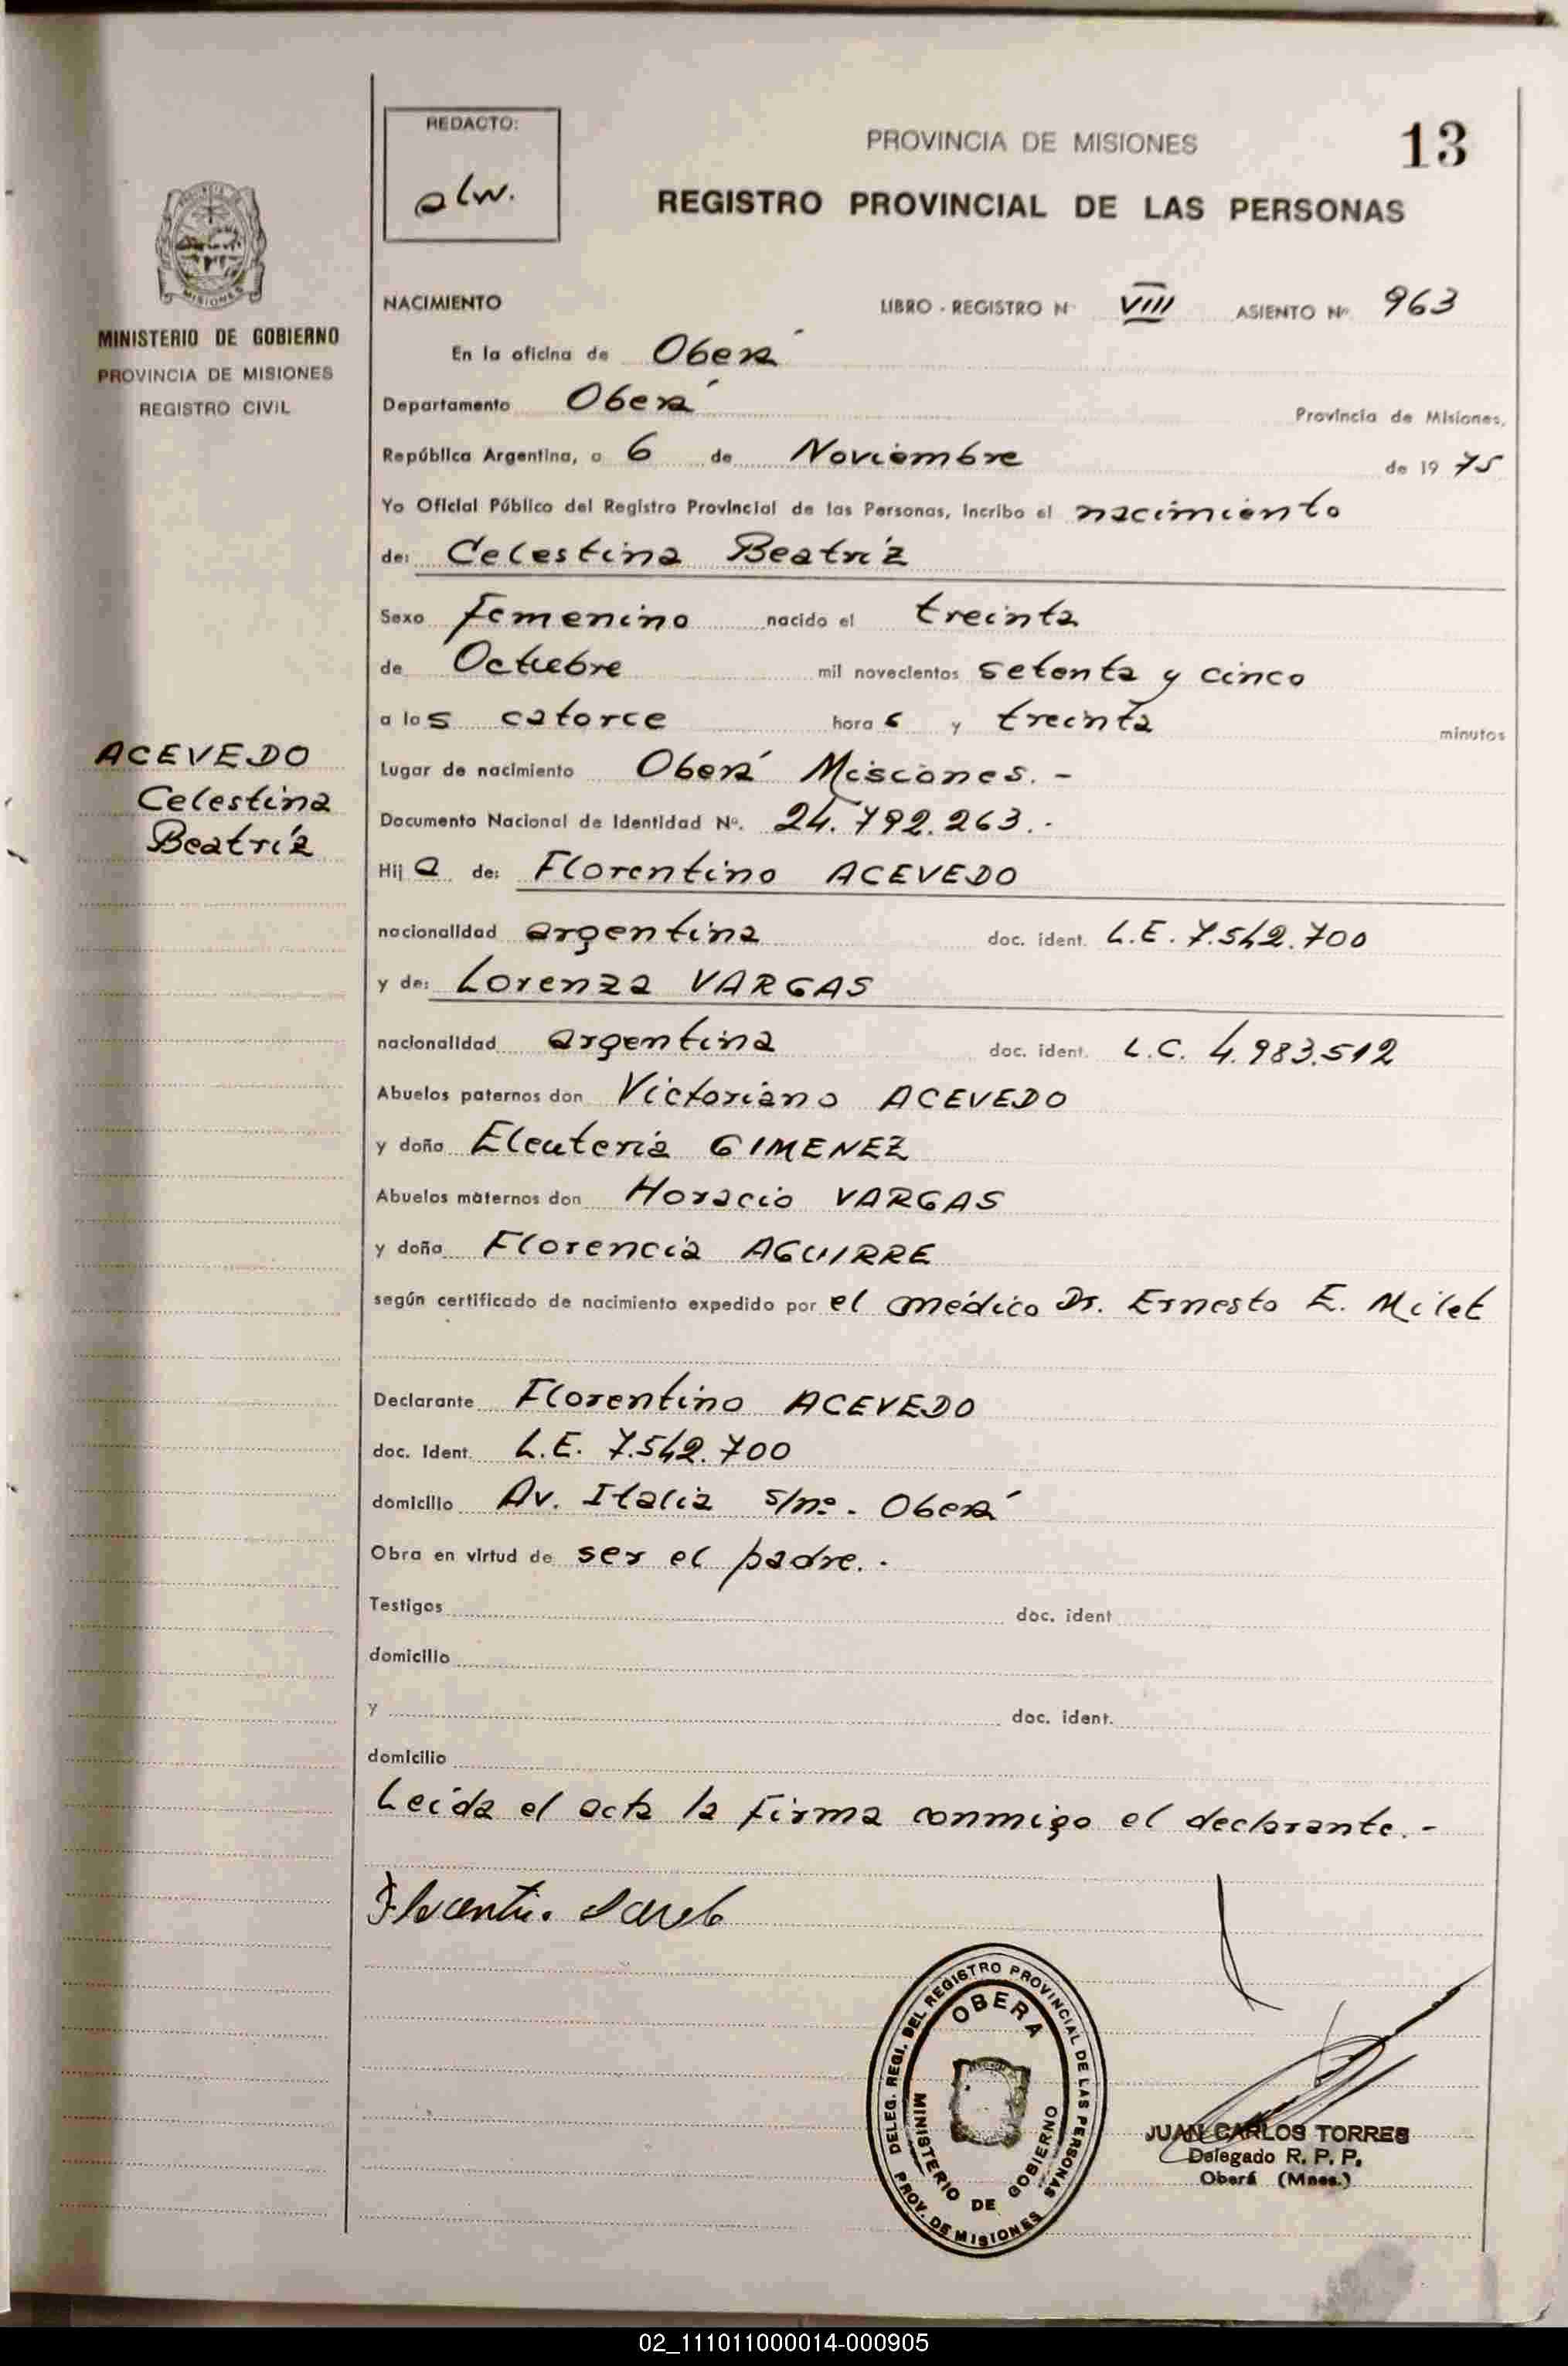 REDACTO:
alw.
PROVINCIA DE MISIONES
13
REGISTRO PROVINCIAL DE LAS PERSONAS
MISIONES
MINISTERIO DE GOBIERNO
PROVINCIA DE MISIONES
REGISTRO CIVIL
NACIMIENTO LIBRO - REGISTRO Nº VIII ASIENTO Nº 963
En la oficina de Oberá
Departamento Oberá Provincia de Misiones,
República Argentina, a 6 de Noviembre de 1975
Yo Oficial Público del Registro Provincial de las Personas, incribo el nacimiento
de: Celestina Beatríz
Sexo femenino nacido el treinta
de Octubre mil novecientos setenta y cinco
a las catorce horas y treinta minutos
ACEVEDO
Celestina
Beatríz
Lugar de nacimiento Oberá Misiones. -
Documento Nacional de Identidad Nº. 24.792.263.-
Hija de: Florentino ACEVEDO
nacionalidad argentina doc. ident. L.E. 7.542.700
y de: Lorenza VARGAS
nacionalidad argentina doc. ident. L.C. 4.983.512
Abuelos paternos don Victoriano ACEVEDO
y doña Eleuteria GIMENEZ
Abuelos maternos don Horacio VARGAS
y doña Florencia AGUIRRE
según certificado de nacimiento expedido por el médico Dr. Ernesto E. Milet
Declarante Florentino ACEVEDO
doc. Ident. L.E. 7.542.700
domicilio Av. Italia s/nº - Oberá
Obra en virtud de ser el padre. -
Testigos doc. ident
domicilio
y doc. ident.
domicilio
Leída el acta la firma conmigo el declarante. -
DELEG. REGI. DEL REGISTRO PROVINCIAL DE LAS PERSONAS
OBERA
MINISTERIO DE GOBIERNO
PROV. DE MISIONES
JUAN CARLOS TORRES
Delegado R. P. P.
Oberá (Mnes.)
02_111011000014-000905